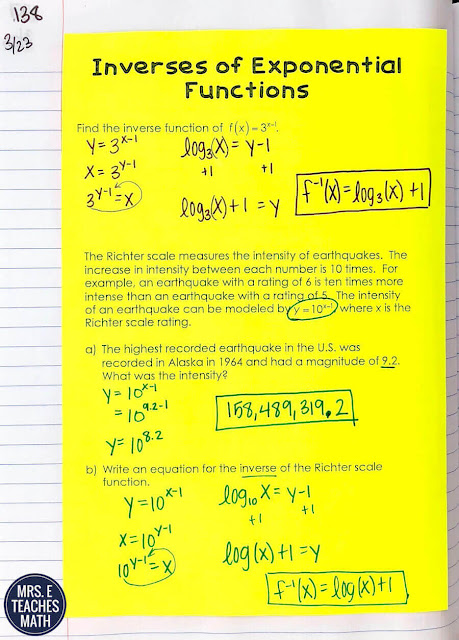 138
3/23
Inverses of Exponential
Functions
Find the inverse function of f(x) = 3ˣ⁻¹.
y = 3ˣ⁻¹
x = 3ʸ⁻¹
3ʸ⁻¹ = x
log₃(x) = y-1
+1 +1
log₃(x)+1 = y
f⁻¹(x) = log₃(x) +1
The Richter scale measures the intensity of earthquakes. The
increase in intensity between each number is 10 times. For
example, an earthquake with a rating of 6 is ten times more
intense than an earthquake with a rating of 5. The intensity
of an earthquake can be modeled by y = 10ˣ⁻¹, where x is the
Richter scale rating.
a) The highest recorded earthquake in the U.S. was
recorded in Alaska in 1964 and had a magnitude of 9.2.
What was the intensity?
y = 10ˣ⁻¹
= 10⁹·²⁻¹
y = 10⁸·²
158,489,319.2
b) Write an equation for the inverse of the Richter scale
function.
y = 10ˣ⁻¹
x = 10ʸ⁻¹
10ʸ⁻¹ = x
log₁₀ x = y-1
+1 +1
log(x)+1 = y
f⁻¹(x) = log(x)+1
MRS. E
TEACHES
MATH